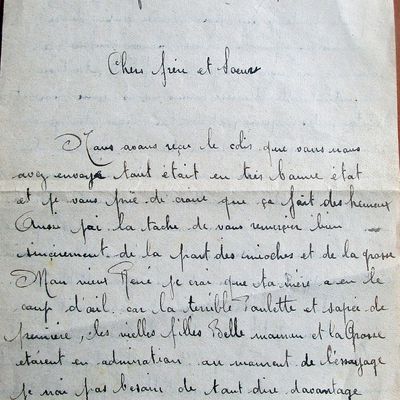 Chers frère et Soeurs
Nous avons reçu le colis que vous nous
avez envoyé tout était en très bonne état
et je vous prie de croire que ça fait des heureux
Aussi j'ai la tache de vous remercier bien
sincèrement de la part des mioches et de la grosse
Mon vieux René je crois que ta mère a eu le
coup d'œil car la terrible Paulette et sapée de
première, les vielles filles Belle maman et la Grosse
étaient en admiration au moment de l'essayage
je nais pas besoin de tant dire davantage